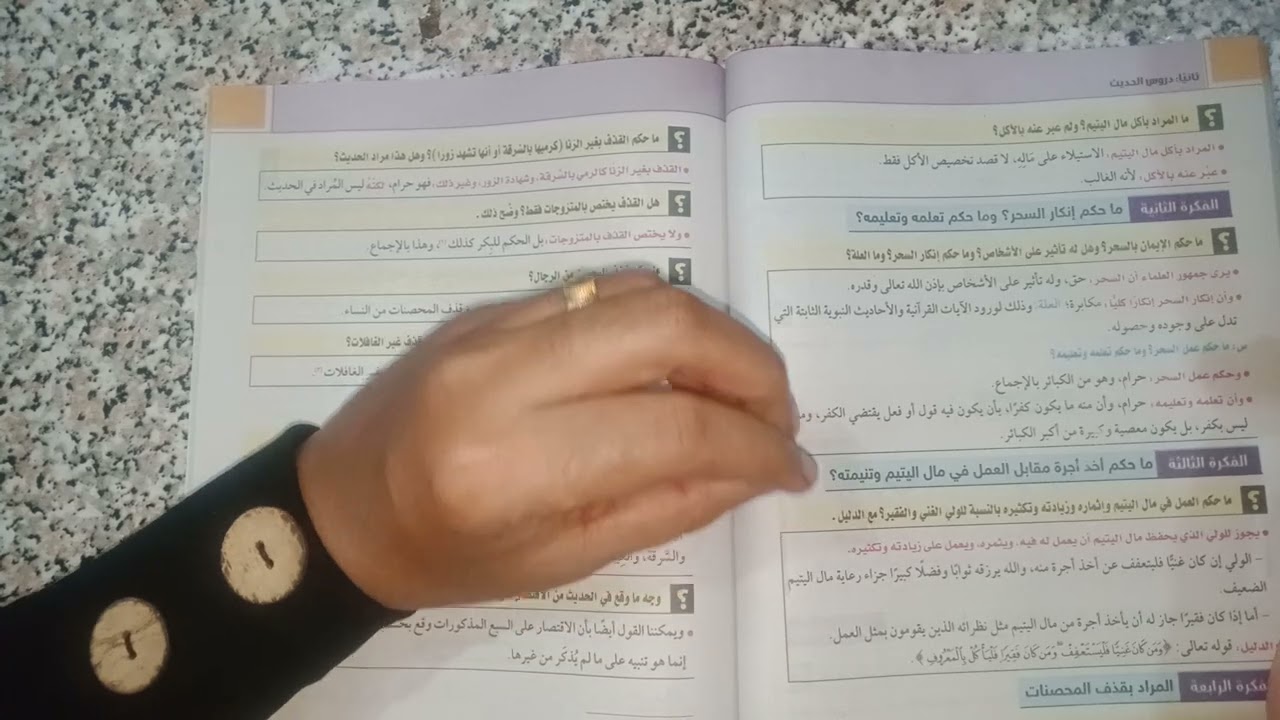 ثانيًا: دروس الحديث
؟ ما المراد بأكل مال اليتيم؟ ولم عبر عنه بالأكل؟
• المراد بأكل مال اليتيم، الاستيلاء على مَالِهِ، لا قصد تخصيص الأكل فقط.
• عبّر عنه بالأكل، لأنه الغالب.
الفكرة الثانية ما حكم إنكار السحر؟ وما حكم تعلمه وتعليمه؟
؟ ما حكم الإيمان بالسحر؟ وهل له تأثير على الأشخاص؟ وما حكم إنكار السحر؟ وما العلة؟
• يرى جمهور العلماء أن السحر، حق، وله تأثير على الأشخاص بإذن الله تعالى وقدره.
• وأن إنكار السحر إنكارًا كليًّا، مكابرة؛ العلة: وذلك لورود الآيات القرآنية والأحاديث النبوية الثابتة التي
تدل على وجوده وحصوله.
س: ما حكم عمل السحر؟ وما حكم تعلمه وتعليمه؟
• وحكم عمل السحر، حرام، وهو من الكبائر بالإجماع.
• وأن تعلمه وتعليمه، حرام، وأن منه ما يكون كفرًا، بأن يكون فيه قول أو فعل يقتضي الكفر، ومنه
ليس بكفر، بل يكون معصية وكبيرة من أكبر الكبائر.
الفكرة الثالثة ما حكم أخذ أجرة مقابل العمل في مال اليتيم وتنيمته؟
؟ ما حكم العمل في مال اليتيم وإثماره وزيادته وتكثيره بالنسبة للولي الغني والفقير؟ مع الدليل.
• يجوز للولي الذي يحفظ مال اليتيم أن يعمل له فيه، ويثمره، ويعمل على زيادته وتكثيره.
– الولي إن كان غنيًّا فليتعفف عن أخذ أجرة منه، والله يرزقه ثوابًا وفضلًا كبيرًا جزاء رعاية مال اليتيم
الضعيف.
– أما إذا كان فقيرًا جاز له أن يأخذ أجرة من مال اليتيم مثل نظرائه الذين يقومون بمثل العمل.
الدليل، قوله تعالى: ﴿وَمَن كَانَ غَنِيًّا فَلْيَسْتَعْفِفْ وَمَن كَانَ فَقِيرًا فَلْيَأْكُلْ بِالْمَعْرُوفِ﴾.
الفكرة الرابعة المراد بقذف المحصنات
؟ ما حكم القذف بغير الزنا (كرميها بالسَّرقة أو أنها تشهد زورا)؟ وهل هذا مراد الحديث؟
• القذف بغير الزنا كالرمي بالسَّرقة، وشهادة الزور، وغير ذلك، فهو حرام، لكنَّهُ ليس المُراد في الحديث.
؟ هل القذف يختص بالمتزوجات فقط؟ وضّح ذلك.
• ولا يختص القذف بالمتزوجات، بل الحكم للبِكر كذلك (١)، وهذا بالإجماع.
؟ من الرجال؟
قذف المحصنات من النساء.
قذف غير الغافلات؟
الغافلات (٢).
والسَّرقة،
؟ وجه ما وقع في الحديث من
• ويمكننا القول أيضًا بأن الاقتصار على السبع المذكورات وقع
إنما هو تنبيه على ما لم يُذكَر من غيرها.